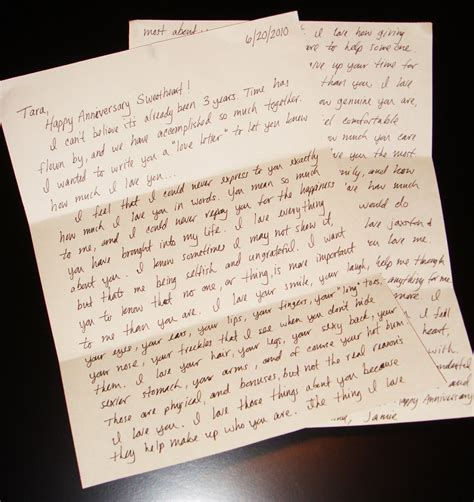 6/20/2010
Tara,
Happy Anniversary Sweetheart!
I can't believe its already been 3 years. Time has
flown by, and we have accomplished so much together.
I wanted to write you a "love letter" to let you know
how much I love you...
I feel that I could never express to you exactly
how much I love you in words. You mean so much
to me, and I could never repay you for the happiness
you have brought into my life. I love everything
about you. I know sometimes I may not show it,
but thats me being selfish and ungrateful. I want
you to know that no one, or thing, is more important
to me than you are. I love your smile, your laugh,
your eyes, your ears, your lips, your fingers, your "long" toes,
your nose, your freckles that I see when you don't hide
them. I love your hair, your legs, your sexy back, your
sexier stomach, your arms, and of course your hot bum.
Those are physical, and bonuses, but not the real reasons
I love you. I love those things about you because
they help make up who you are. The thing I love
most about
I love how giving
are to help someone
up your time for
than you. I love
how genuine you are,
comfortable
much you care
you the most
and know
how much
would do
love jaxston &
love me.
help me through
anything for me
more. I
I feel
heart,
with
Happy Anniversary
Jamie